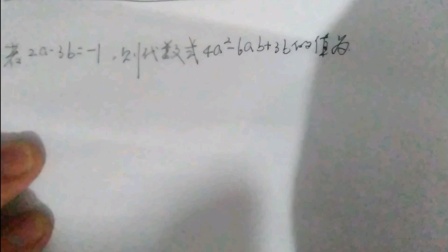 若2a-3b=-1,则代数式4a²-6ab+3b的值为